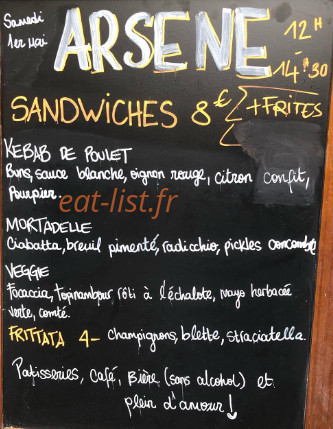 Samedi
1er Mai
ARSENE
12H
-
14H30
SANDWICHES 8€ + FRITES
KEBAB DE POULET
Buns, sauce blanche, oignon rouge, citron confit,
Pourpier.
eat-list.fr
MORTADELLE
Ciabatta, breuil pimenté, radicchio, pickles concombre
VEGGIE
Focaccia, Topinambour rôti à l'échalote, mayo herbacée
verte, comté.
FRITTATA 4- champignons, blette, straciatella.
Patisseries, Café, Bière (sans alcohol) et
plein d'amour!